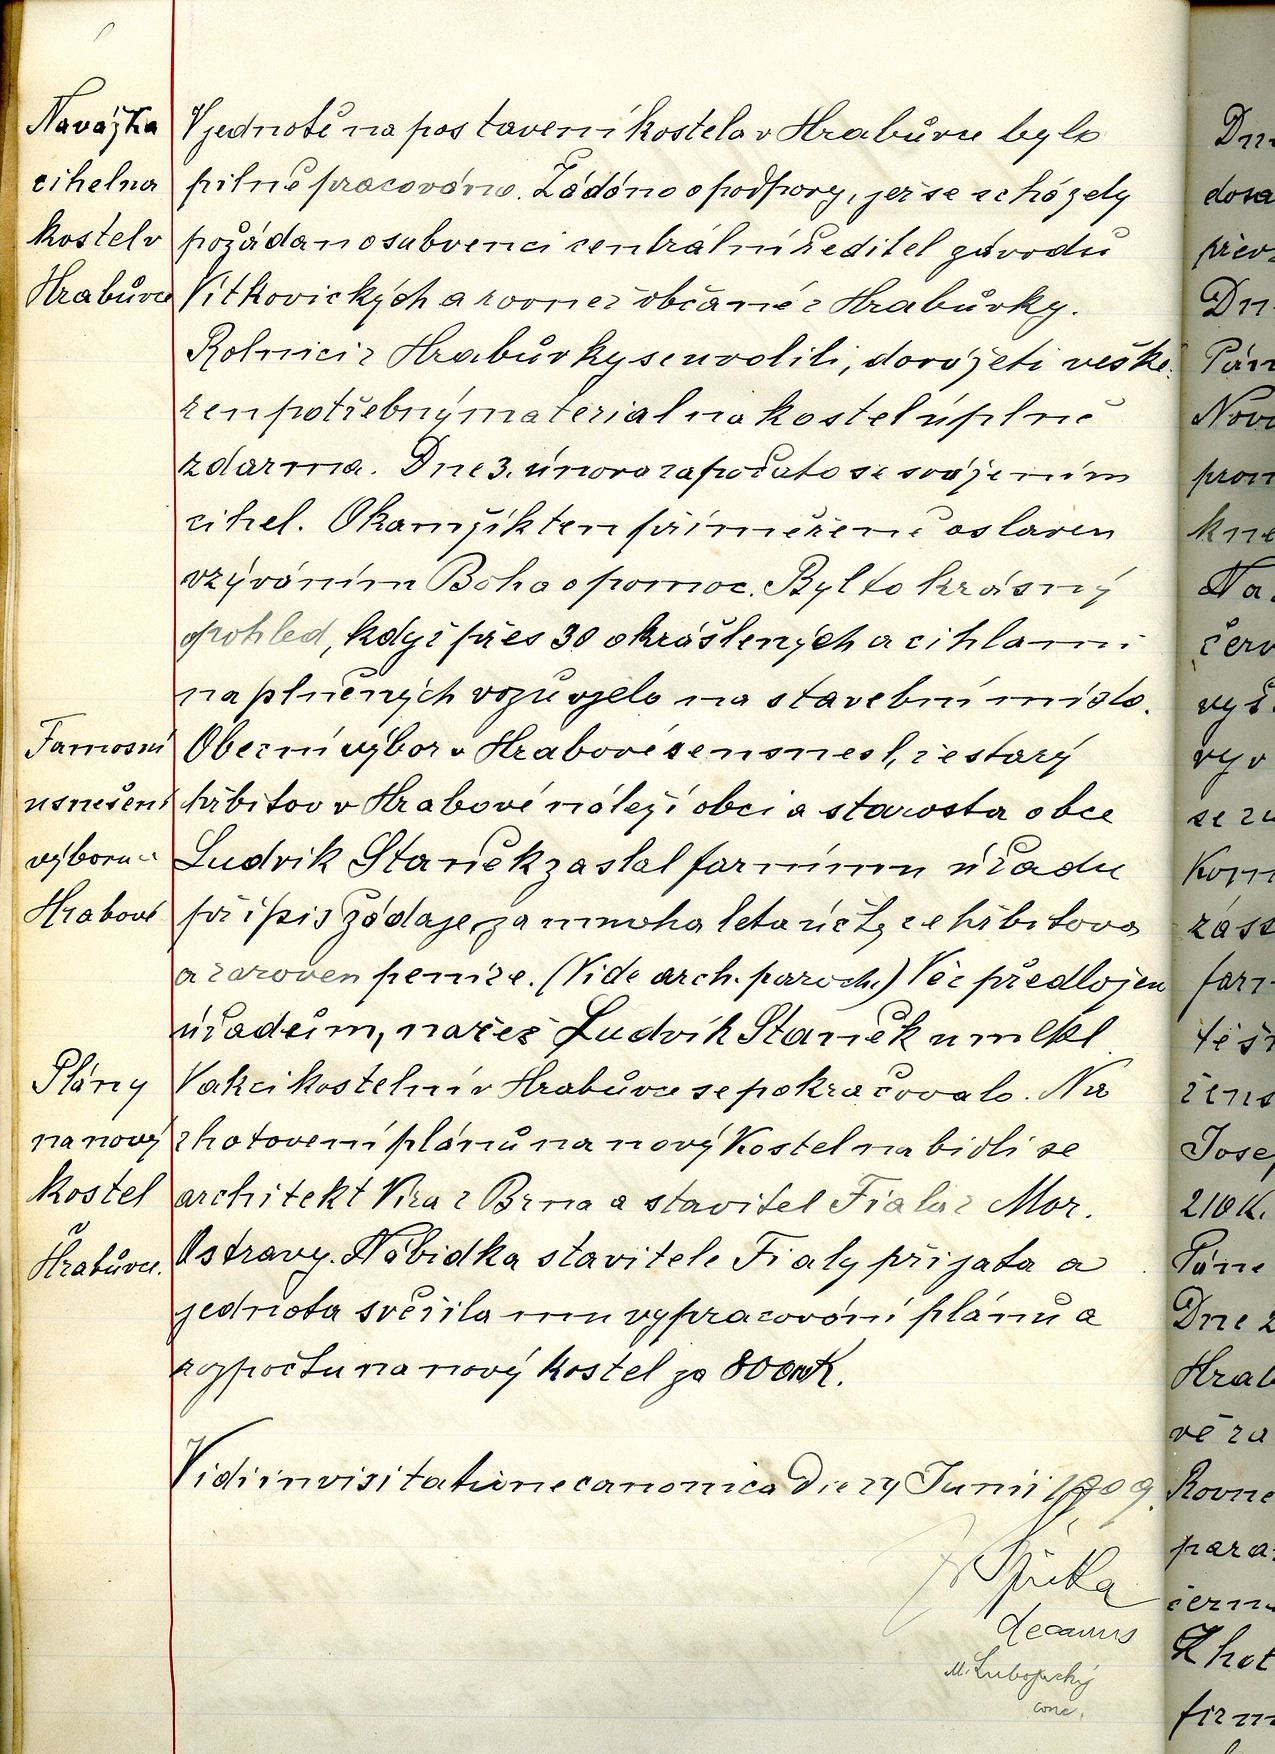 Navážka
cihel na
kostel v
Hrabůvce
V jednotě na postavení kostela v Hrabůvce bylo
pilně pracováno. Žádáno o podpory, jež se scházely
požádano o subvenci centrální ředitel závodů
Vítkovických a rovněž občané z Hrabůvky.
Rolníci z Hrabůvky se uvolili, dovážeti veške-
ren potřebný material na kostel úplně
zdarma. Dne 3. února započato se svážením
cihel. Okamžik ten přiměřeně oslaven
vzýváním Boha o pomoc. Byl to krásný
pohled, když přes 30 okrášlených a cihlami
naplněných vozů vjelo na stavební místo.
Famosní
usnešení
výboru v
Hrabové
Obecní výbor v Hrabové se usnesl, že starý
hřbitov v Hrabové náleží obci a starosta obce
Ludvik Staněk zaslal farnímu úřadu
přípis žádaje, za mnoha leta účty ze hřbitova
a zároven peníze. (Vide arch. paroch.) Věc předložena
úřadům, načež Ludvík Staněk umlkl
Plány
na nový
kostel
v
Hrabůvce.
V akci kostelní v Hrabůvce se pokračovalo. Na
zhotovení plánů na nový kostel nabídli se
architekt Vira z Brna a stavitel Fiala z Mor.
Ostravy. Nabidka stavitele Fialy přijata a
jednota svěřila mu vypracování plánů a
rozpočtu na nový kostel za 800 K.
Vidi in visitatione canonica die 24 Junii 1909.
decanus
M. Lubojacký
conc.
Dn
dosa
převz
Dn
Pán
Novo
pron
kne
Na
červ
vyš
vyv
se zu
Kom
zást
farn
těšn
žens
Josef
210 K.
Páne
Dne 2
Hrab
vě za
Rovne
para
čern
Zhot
firm